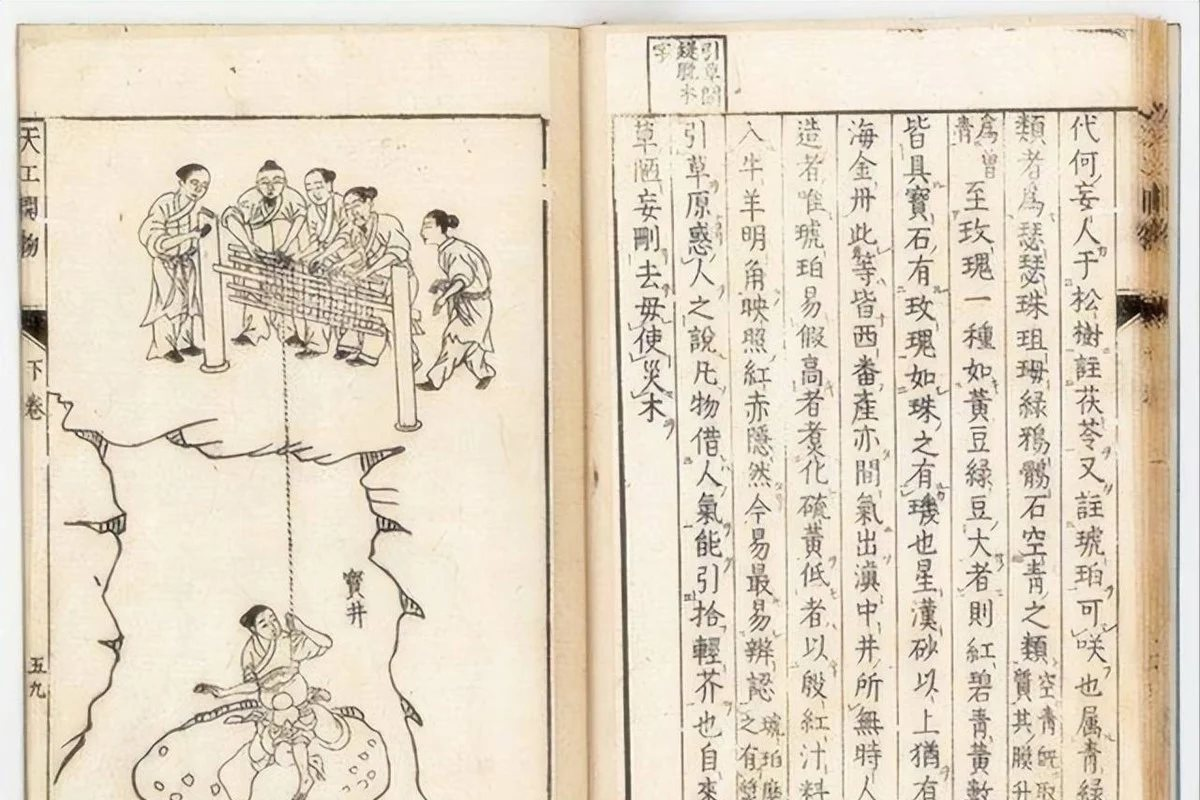 引草
字
代何妄人于松樹註茯苓又註琥珀可咲也属青緑
類者爲瑟瑟珠珇緑鴉鶻石空青之類
空青既取
質其膜升
爲曾
青
至玫瑰一種如黃豆緑豆大者則紅碧青黃數
皆具寶石有玫瑰如珠之有璣也星漢砂以上猶有
海金丹此等皆西番産亦間氣出滇中井所無時人
造者唯琥珀易假高者煮化硫黃低者以殷紅汁料
入牛羊明角映照紅赤隱然今易最易辨認
琥珀磨
之有漿
引草原惑人之說凡物借人氣能引拾輕芥也自來
草陋妄刪去毋使災木
寶井
天工開物
下卷
五九